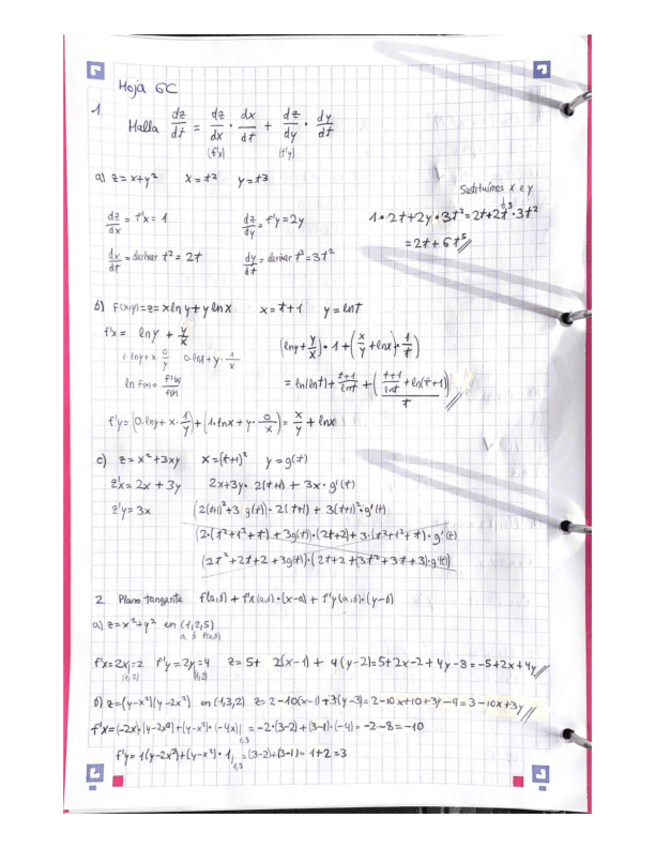 Hoja 6C
1. Halla dz/dt = dz/dx · dx/dt + dz/dy · dy/dt
(f'x) (f'y)
a) z = x+y² x = t² y = t³
Sustituímos x e y
dz/dx = f'x = 1 dz/dy = f'y = 2y 1·2t+2y·3t² = 2t+2t³·3t²
= 2t+6t⁵
dx/dt = derivar t² = 2t dy/dt = derivar t³ = 3t²
b) F(x,y)=z= x ln y + y ln x x = t+1 y = ln t
f'x = ln y + y/x (ln y + y/x)·1 + (x/y + ln x)·1/t
1·ln y + x 0/y 0·ln x + y·1/x
ln F(x) = f'(x)/f(x) = ln(ln t) + t+1/ln t + (t+1/ln t + ln(t+1))/t
f'y = (0·ln y + x·1/y) + (1·ln x + y·0/x) = x/y + ln x
c) z = x²+3xy x = (t+1)² y = g(t)
z'x = 2x + 3y 2x+3y · 2(t+1) + 3x · g'(t)
z'y = 3x (2(t+1)²+3 g(t)) · 2(t+1) + 3(t+1)²·g'(t)
(2·(t²+1²+t) + 3g(t))·(2t+2) + 3·(t²+1²+t)·g'(t)
(2t²+2t+2+3g(t))·(2t+2+(3t²+3t+3)·g'(t))
2. Plano tangente f(a,b) + f'x(a,b)·(x-a) + f'y(a,b)·(y-b)
a) z = x²+y² en (1,2,5)
a b f(a,b)
f'x = 2x| = 2 f'y = 2y| = 4 z = 5+ 2(x-1) + 4(y-2) = 5+2x-2+4y-8 = -5+2x+4y
(1,2) (1,2)
b) z = (y-x²)(y-2x²) en (1,3,2) z = 2-10(x-1)+3(y-3) = 2-10x+10+3y-9 = 3-10x+3y
f'x = (-2x)·(y-2x²)+(y-x²)·(-4x)| = -2·(3-2)+(3-1)·(-4) = -2-8 = -10
1,3
f'y = 1(y-2x²)+(y-x²)·1| = (3-2)+(3-1) = 1+2 = 3
1,3